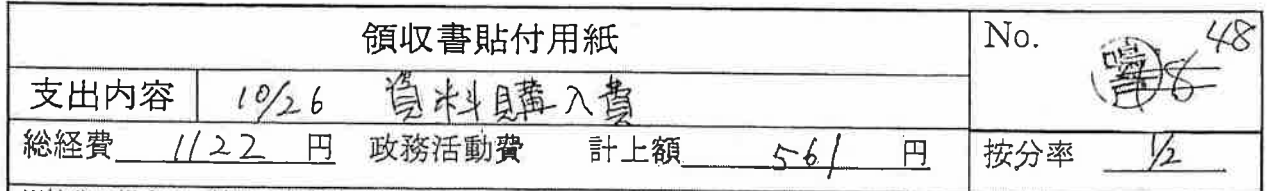 領収書貼付用紙
No. 48
支出内容 10/26 資料購入費
総経費 1122 円 政務活動費 計上額 561 円 按分率 1/2